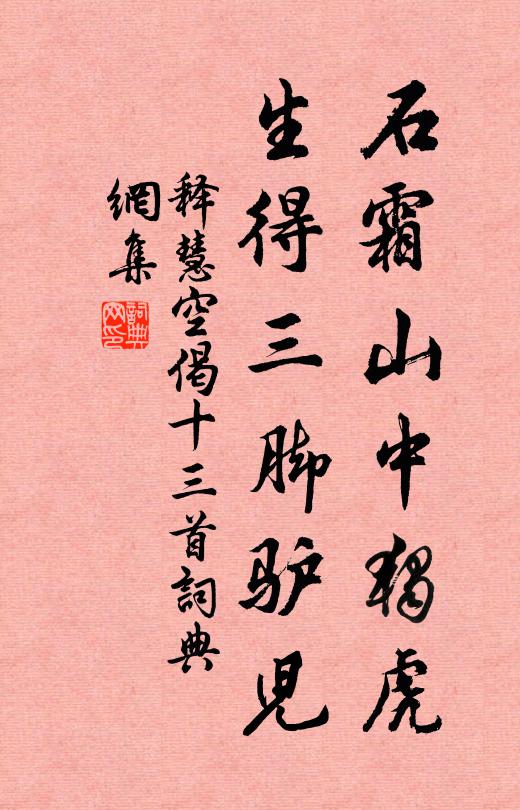 石霜山中独虎
生得三脚驴児
释慧空偈十三首詞典
網集
詞典网印